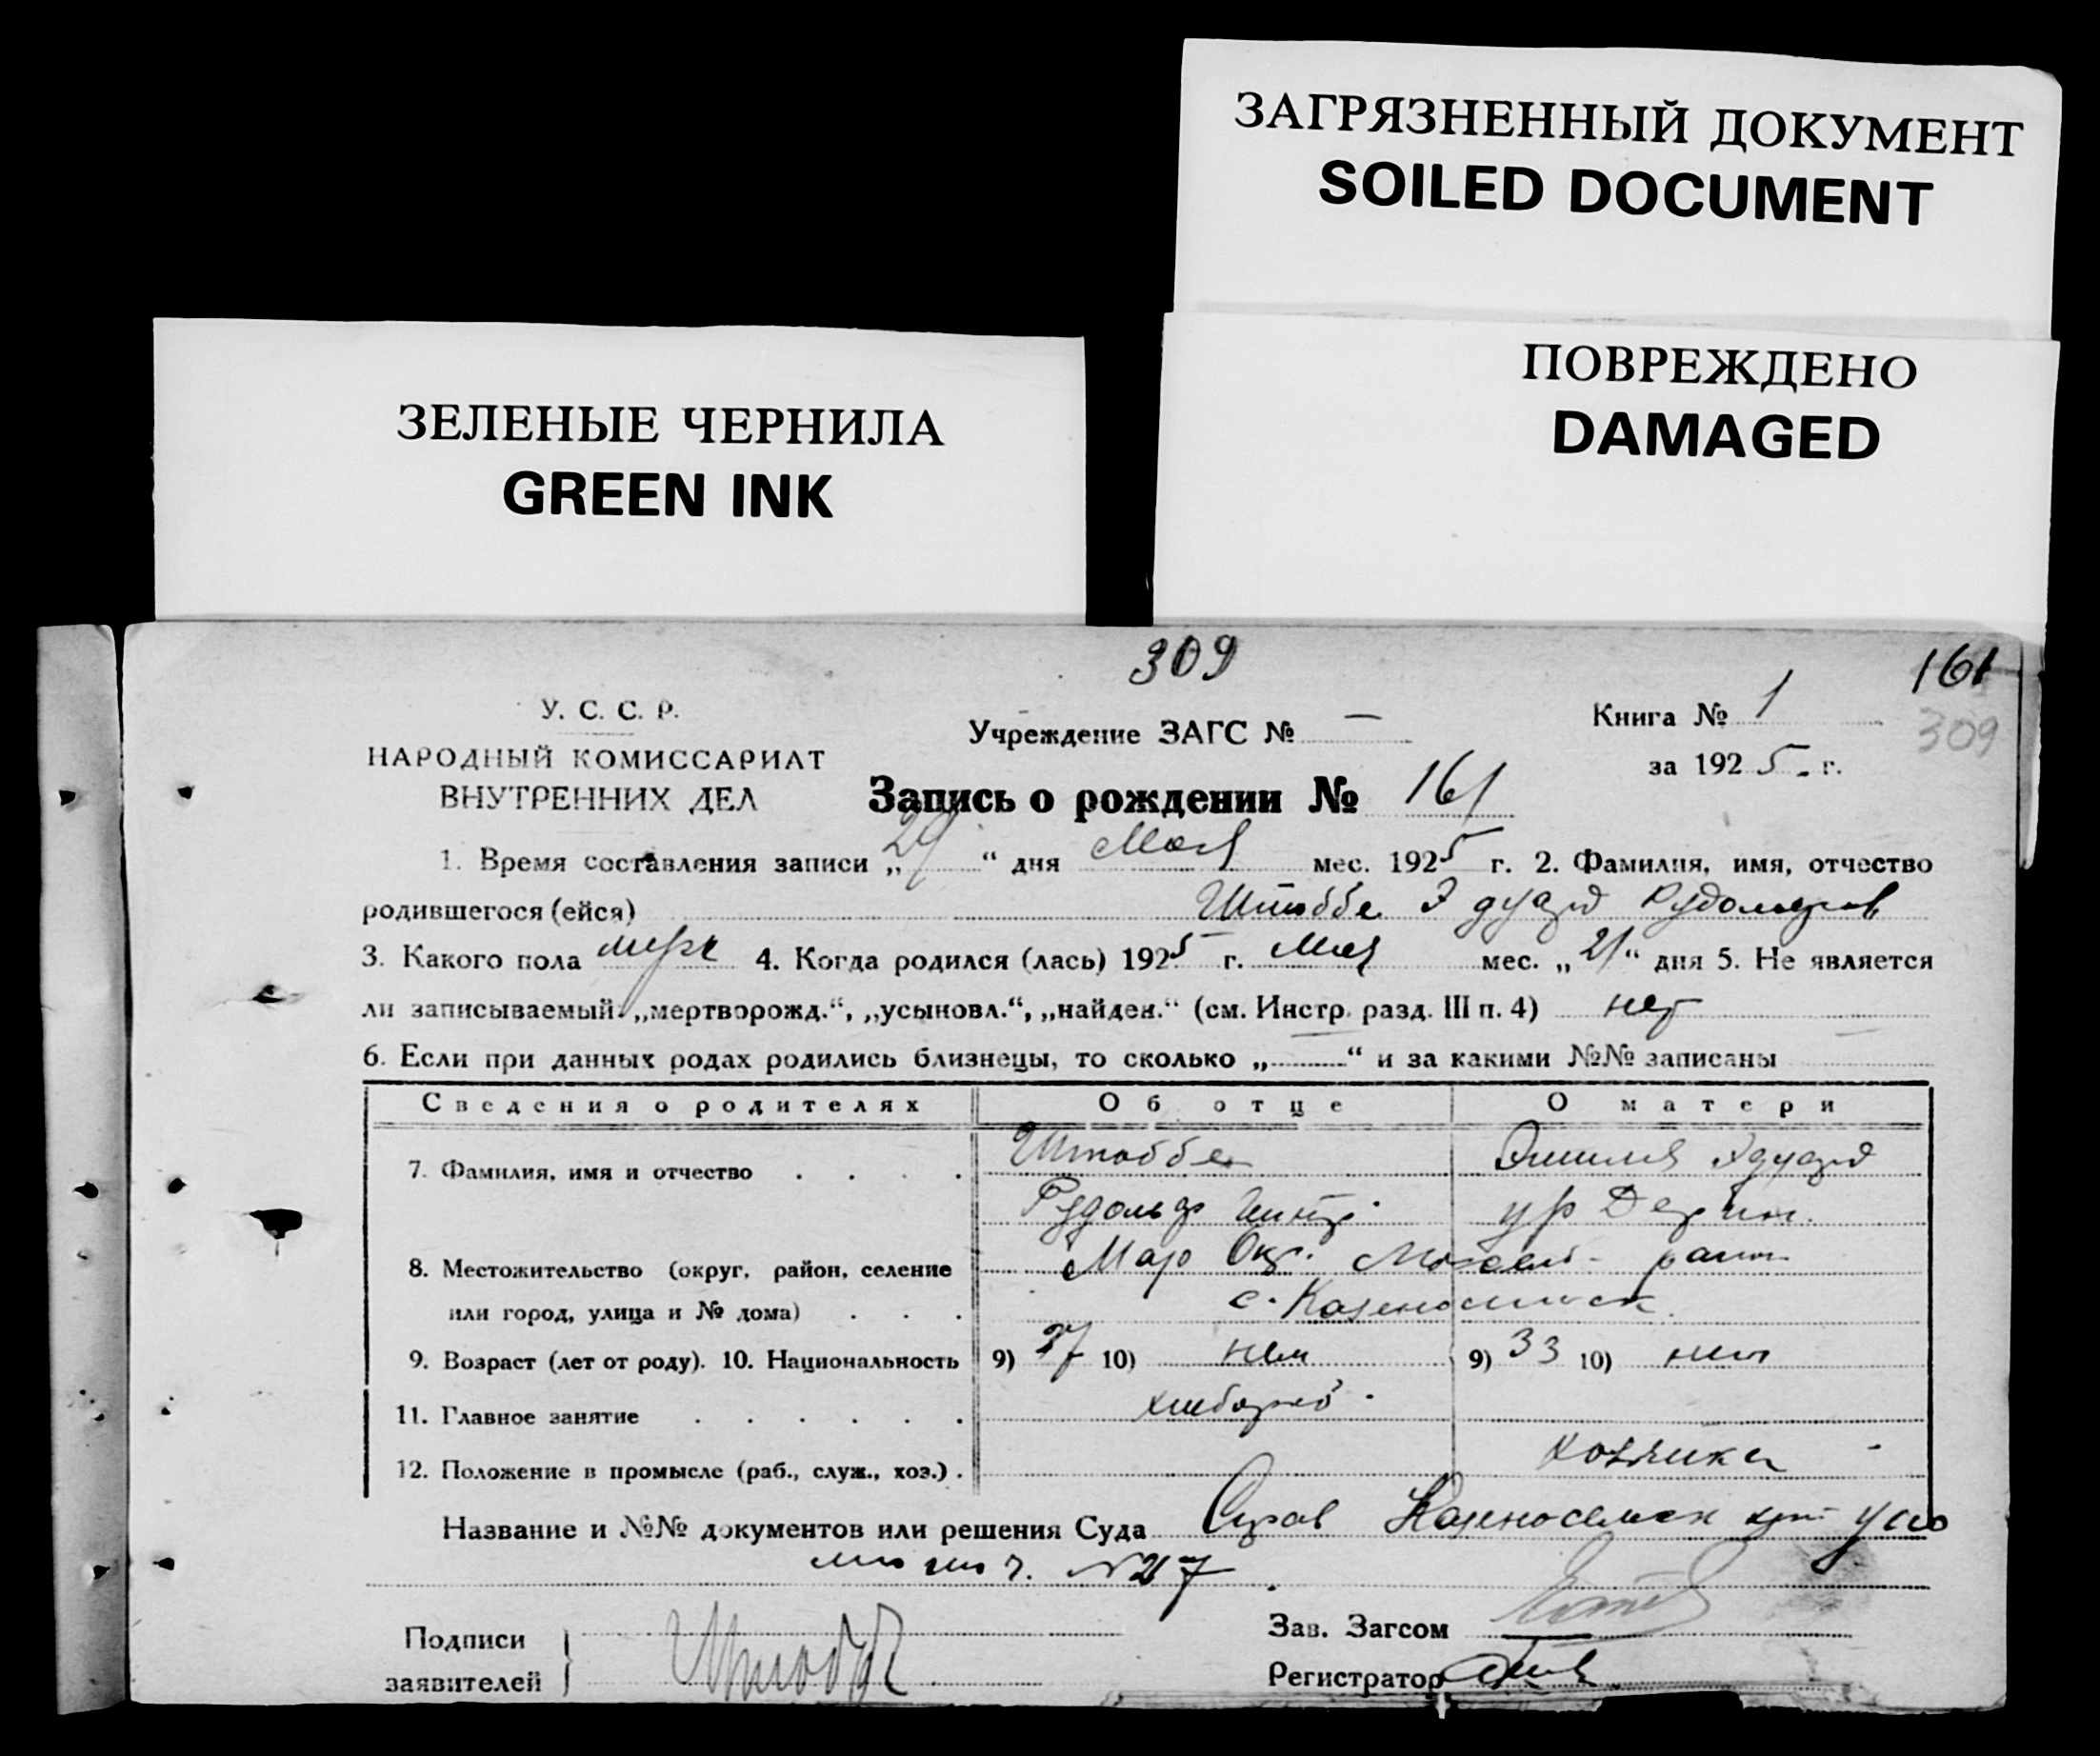 ЗАГРЯЗНЕННЫЙ ДОКУМЕНТ
SOILED DOCUMENT
ПОВРЕЖДЕНО
DAMAGED
ЗЕЛЕНЫЕ ЧЕРНИЛА
GREEN INK
309
161
309
У. С. С. Р.
НАРОДНЫЙ КОМИССАРИАТ
ВНУТРЕННИХ ДЕЛ
Учреждение ЗАГС № —
Книга № 1
за 1925 г.
Запись о рождении № 161
1. Время составления записи „29“ дня Мая мес. 1925 г. 2. Фамилия, имя, отчество
родившегося (ейся) Штоббе Эдуард Рудольфов
3. Какого пола муж 4. Когда родился (лась) 1925 г. Мая мес. „21“ дня 5. Не является
ли записываемый „мертворожд.“, „усыновл.“, „найден.“ (см. Инстр. разд. III п. 4) нет
6. Если при данных родах родились близнецы, то сколько „—“ и за какими №№ записаны —
Сведения о родителях Об отце О матери
7. Фамилия, имя и отчество Штоббе Эмилия Эдуард
Рудольф ур
8. Местожительство (округ, район, селение Мар Окр. район
или город, улица и № дома) с.
9. Возраст (лет от роду). 10. Национальность 9) 37 10) нем 9) 33 10) нем
11. Главное занятие хлебороб
12. Положение в промысле (раб., служ., хоз.) хозяйка
Название и №№ документов или решения Суда Справ
№ 27
Подписи
заявителей Штоббе
Зав. Загсом
Регистратор